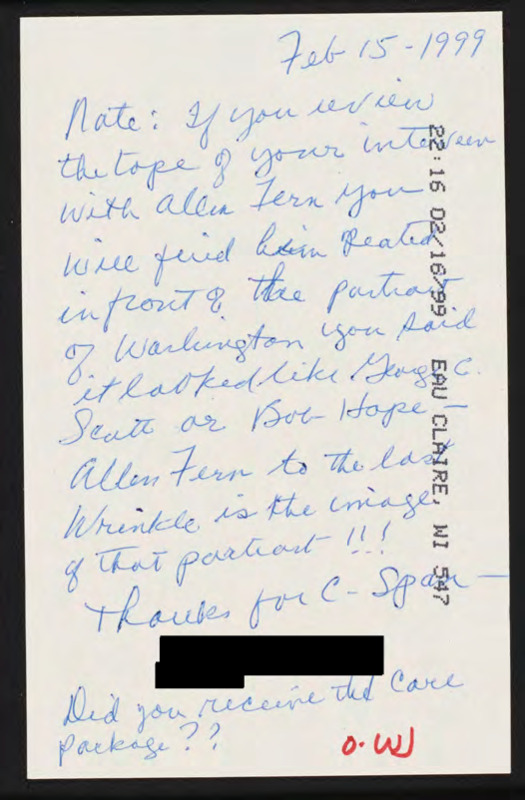 Feb 15-1999
Note: If you review
the tape of your interview
with Allen Fern you
will find him seated
in front of the portrait
of Washington you said
it looked like George C.
Scott or Bob Hope -
Allen Fern to the last
Wrinkle is the image
of that portrait !!!
Thanks for C-Span -
Did you receive the Care
package??
O.W
22:16 02/16/99 EAU CLAIRE, WI 547